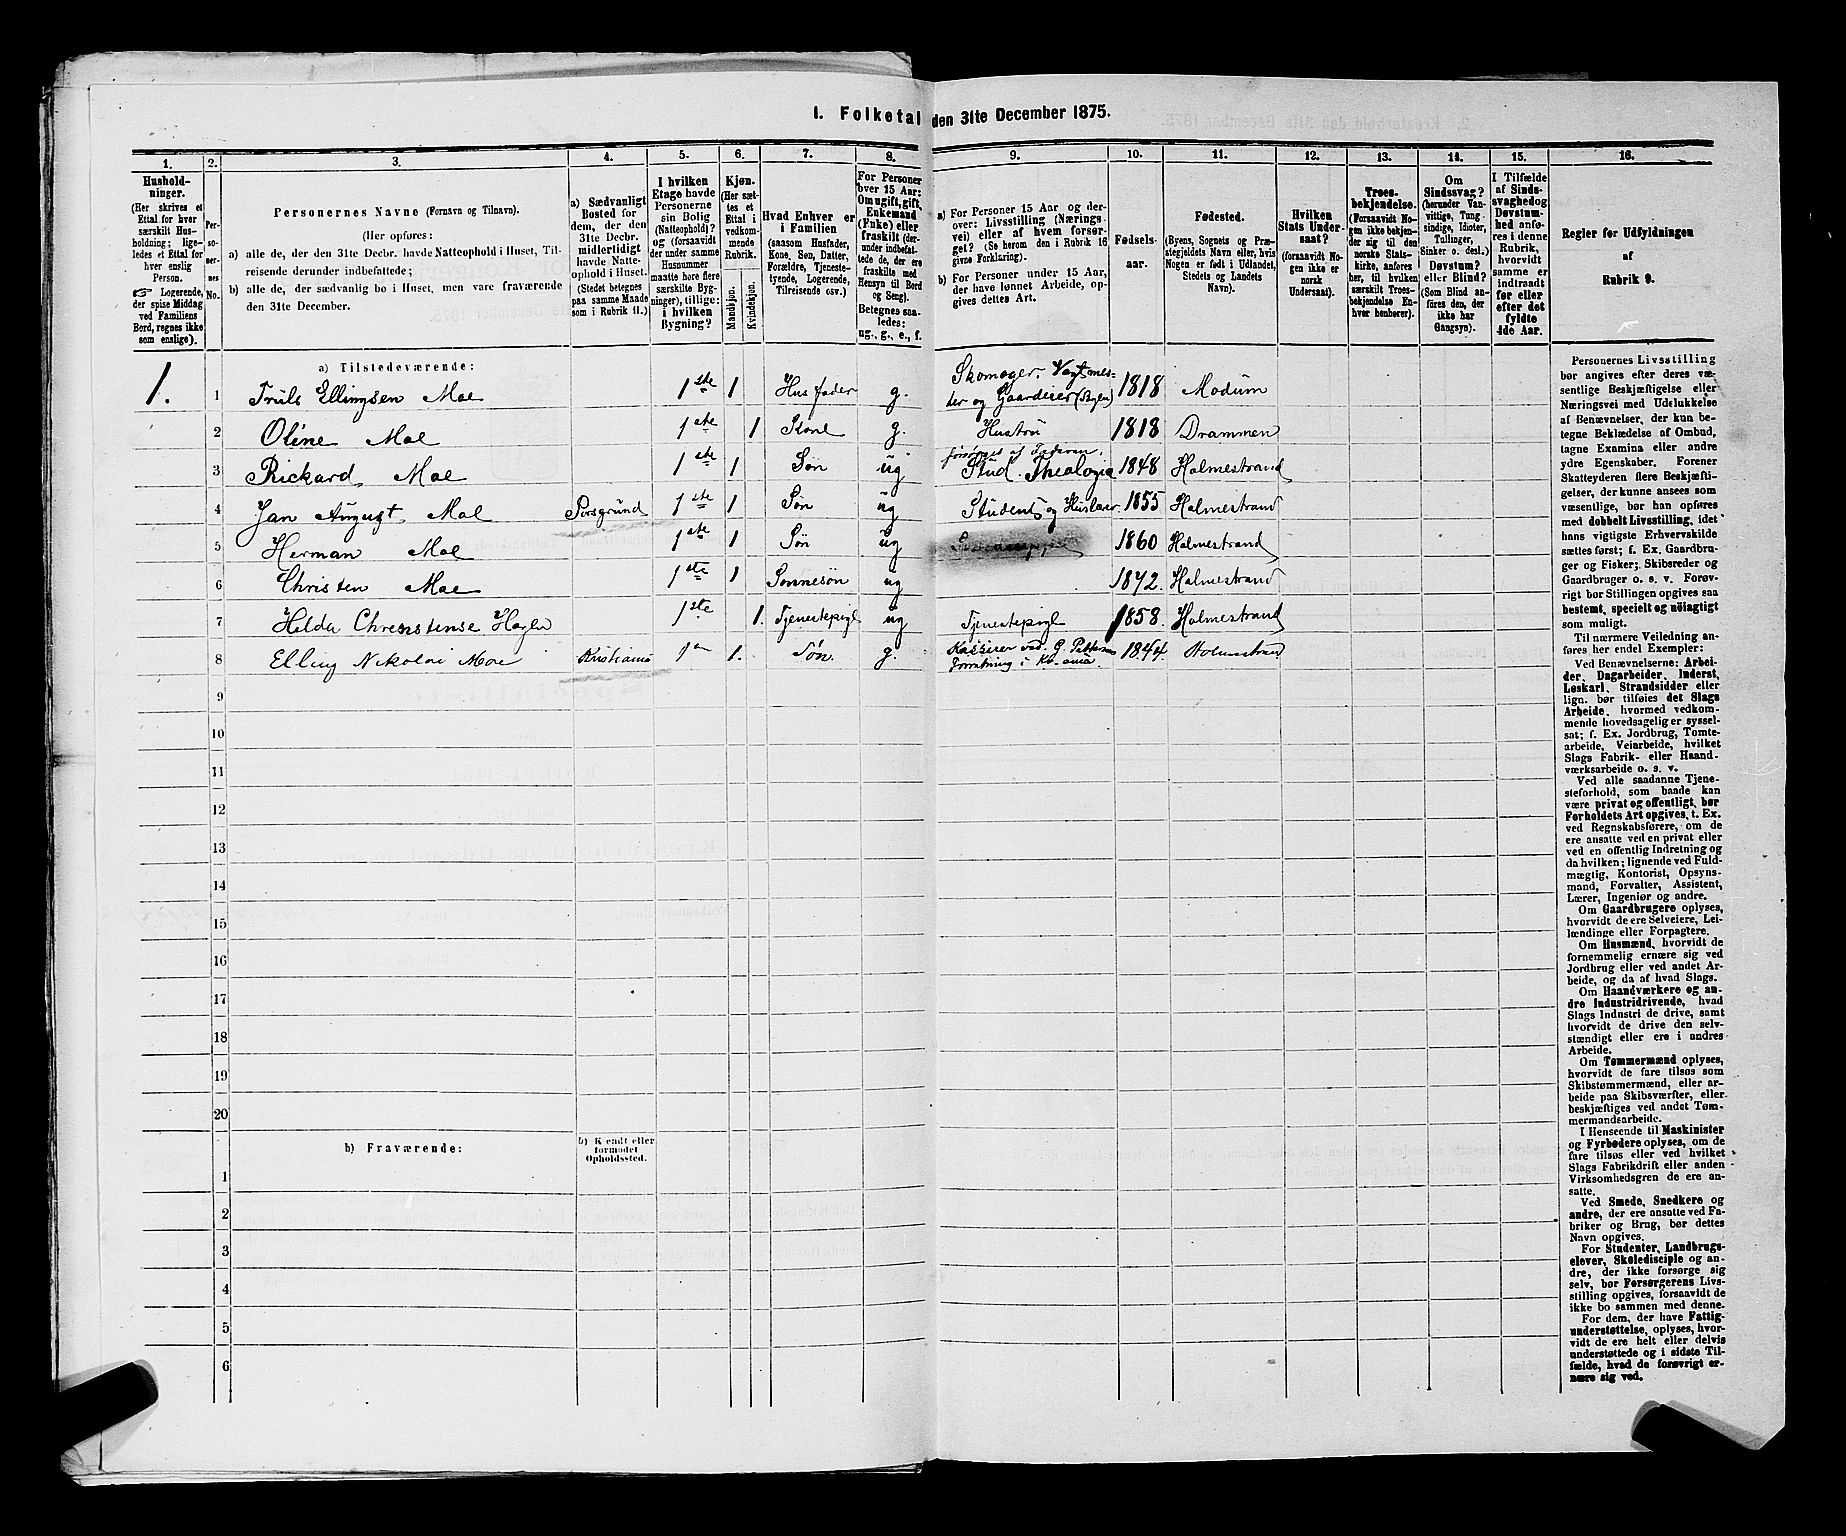 I. Folketal den 31te December 1875.
1. 2. 3. 4. 5. 6. 7. 8. 9. 10. 11. 12. 13. 14. 15. 16.
Hushold-
ninger.
(Her skrives et
Ettal for hver
særskilt Hus-
holdning; lige-
ledes et Ettal for
hver enslig
Person.
☞ Logerende,
der spise Middag
ved Familiens
Bord, regnes ikke
som enslige).
Per-
so-
ner-
nes
No.
Personernes Navne (Fornavn og Tilnavn).
(Her opføres:
a) alle de, der den 31te Decbr. havde Natteophold i Huset, Til-
reisende derunder indbefattede;
b) alle de, der sædvanlig bo i Huset, men vare fraværende
den 31te December.
a) Sædvanligt
Bosted for
dem, der den
31te Decbr.
midlertidigt
havde Natte-
ophold i Huset.
(Stedet betegnes
paa samme Maade
som i Rubrik 11.)
I hvilken
Etage havde
Personerne
sin Bolig
(Natteophold)?
og (forsaavidt
der under samme
Husnummer
maatte høre flere
særskilte Byg-
ninger), tillige:
i hvilken
Bygning?
Kjøn.
(Her sæt-
tes et
Ettal i
vedkom-
mende
Rubrik.
Mandkjøn.
Kvindekjøn.
Hvad Enhver er
i Familien
(saasom Husfader,
Kone, Søn, Datter,
Forældre, Tjeneste-
tyende, Logerende,
Tilreisende osv.)
For Personer
over 15 Aar:
Om ugift, gift,
Enkemand
(Enke) eller
fraskilt (der-
under indbefat-
tede de, der ere
fraskilte med
Hensyn til Bord
og Seng).
Betegnes saa-
ledes:
ug., g., e., f.
a) For Personer 15 Aar og der-
over: Livsstilling (Nærings-
vei) eller af hvem forsør-
get? (Se herom den i Rubrik 16
givne Forklaring).
b) For Personer under 15 Aar,
der have lønnet Arbeide, op-
gives dettes Art.
Fødsels-
aar.
Fødested.
(Byens, Sognets og Præ-
stegjeldets Navn eller, hvis
Nogen er født i Udlandet,
Stedets og Landets
Navn).
Hvilken
Stats Under-
saat?
(forsaavidt No-
gen ikke er
norsk
Undersaat).
Troes-
bekjendelse.
(Forsaavidt No-
gen ikke bekjen-
der sig til den
norske Stats-
kirke, anføres
her, til hvilken
særskilt Troes-
bekjendelse En-
hver henhører).
Om
Sindssvag?
(herunder Van-
vittige, Tung-
sindige, Idioter,
Tullinger,
Sinker o. desl.)
Døvstum?
eller Blind?
(Som Blind an-
føres den, der
ikke har
Gangsyn).
I Tilfælde
af Sinds-
svaghed og
Døvstum-
hed anfø-
res i denne
Rubrik,
hvorvidt
samme er
indtraadt
før eller
efter det
fyldte
4de Aar.
Regler for Udfyldningen
af
Rubrik 9.
a) Tilstedeværende:
1. 1 Truls Ellingsen Moe 1ste 1 Husfader g. Skomager, Vagtmes-
ter og Gaardeier (Byen) 1818 Modum
2 Oline Moe 1ste 1 Kone g. Hustru 1818 Drammen
forsørges af Faderen.
3 Rickard Moe 1ste 1 Søn ug Stud. Theologia 1848 Holmestrand
4 Jan August Moe Porsgrund 1ste 1 Søn ug Student og Huslærer 1855 Holmestrand
5 Herman Moe 1ste 1 Søn ug 1860 Holmestrand
6 Christen Moe 1ste 1 Sønnesøn ug 1872. Holmestrand
7 Helda Chrenstense 1ste 1. Tjenestepige ug Tjenestepige 1858. Holmestrand
8 Elling Nikolai Moe Kristiania 1 1. Søn. g. Kasserer ved G.
Forretning i Kr.ania. 1844. Holmestrand
9
10
11
12
13
14
15
16
17
18
19
20
b) Fraværende: b) Kjendt eller
formodet
Opholdssted.
1
2
3
4
5
6
Personernes Livsstilling
bør angives efter deres væ-
sentlige Beskjæftigelse eller
Næringsvei med Udelukkelse
af Benævnelser, der kun be-
tegne Beklædelse af Ombud,
tagne Examina eller andre
ydre Egenskaber. Forener
Skatteyderen flere Beskjæfti-
gelser, der kunne ansees som
væsentlige, bør han opføres
med dobbelt Livsstilling, idet
hans vigtigste Erhvervskilde
sættes først; f. Ex. Gaardbru-
ger og Fisker; Skibsreder og
Gaardbruger o. s. v. Forøv-
rigt bør Stillingen opgives saa
bestemt, specielt og nøiagtigt
som muligt.
Til nærmere Veiledning an-
føres her endel Exempler:
Ved Benævnelserne: Arbei-
der, Dagarbeider, Inderst,
Løskarl, Strandsidder eller
lign. bør tilføies det Slags
Arbeide, hvormed vedkom-
mende hovedsagelig er syssel-
sat; f. Ex. Jordbrug, Tomte-
arbeide, Veiarbeide, hvilket
Slags Fabrik- eller Haand-
værksarbeide o. s. v.
Ved alle saadanne Tjene-
steforhold, som baade kan
være privat og offentligt, bør
Forholdets Art opgives, t. Ex.
ved Regnskabsførere, om de
ere ansatte ved en privat eller
ved en offentlig Indretning og
da hvilken; lignende ved Fuld-
mægtig, Kontorist, Opsyns-
mand, Forvalter, Assistent,
Lærer, Ingeniør og andre.
Om Gaardbrugere oplyses,
hvorvidt de ere Selveiere, Lei-
lændinge eller Forpagtere.
Om Husmænd, hvorvidt de
fornemmelig ernære sig ved
Jordbrug eller ved andet Ar-
beide, og da af hvad Slags.
Om Haandværkere og an-
dre Industridrivende, hvad
Slags Industri de drive, samt
hvorvidt de drive den selv-
stændigt eller ere i andres
Arbeide.
Om Tømmermænd oplyses,
hvorvidt de fare tilsøs som
Skibstømmermænd, eller ar-
beide paa Skibsværfter, eller
beskjæftiges ved andet Tøm-
mermandsarbeide.
I Henseende til Maskinister
og Fyrbødere oplyses, om de
fare tilsøs eller ved hvilket
Slags Fabrikdrift eller anden
Virksomhedsgren de ere an-
satte.
Ved Smede, Snedkere og
andre, der ere ansatte ved Fa-
briker og Brug, bør dettes
Navn opgives.
For Studenter, Landbrugs-
elever, Skoledisciple og an-
dre, der ikke forsørge sig
selv, bør Forsørgerens Livs-
stilling opgives, forsaavidt de
ikke bo sammen med denne.
For dem, der have Fattig-
understøttelse, oplyses, hvor-
vidt de ere helt eller delvis
understøttede og i sidste Til-
fælde, hvad de forøvrigt er-
nære sig ved.